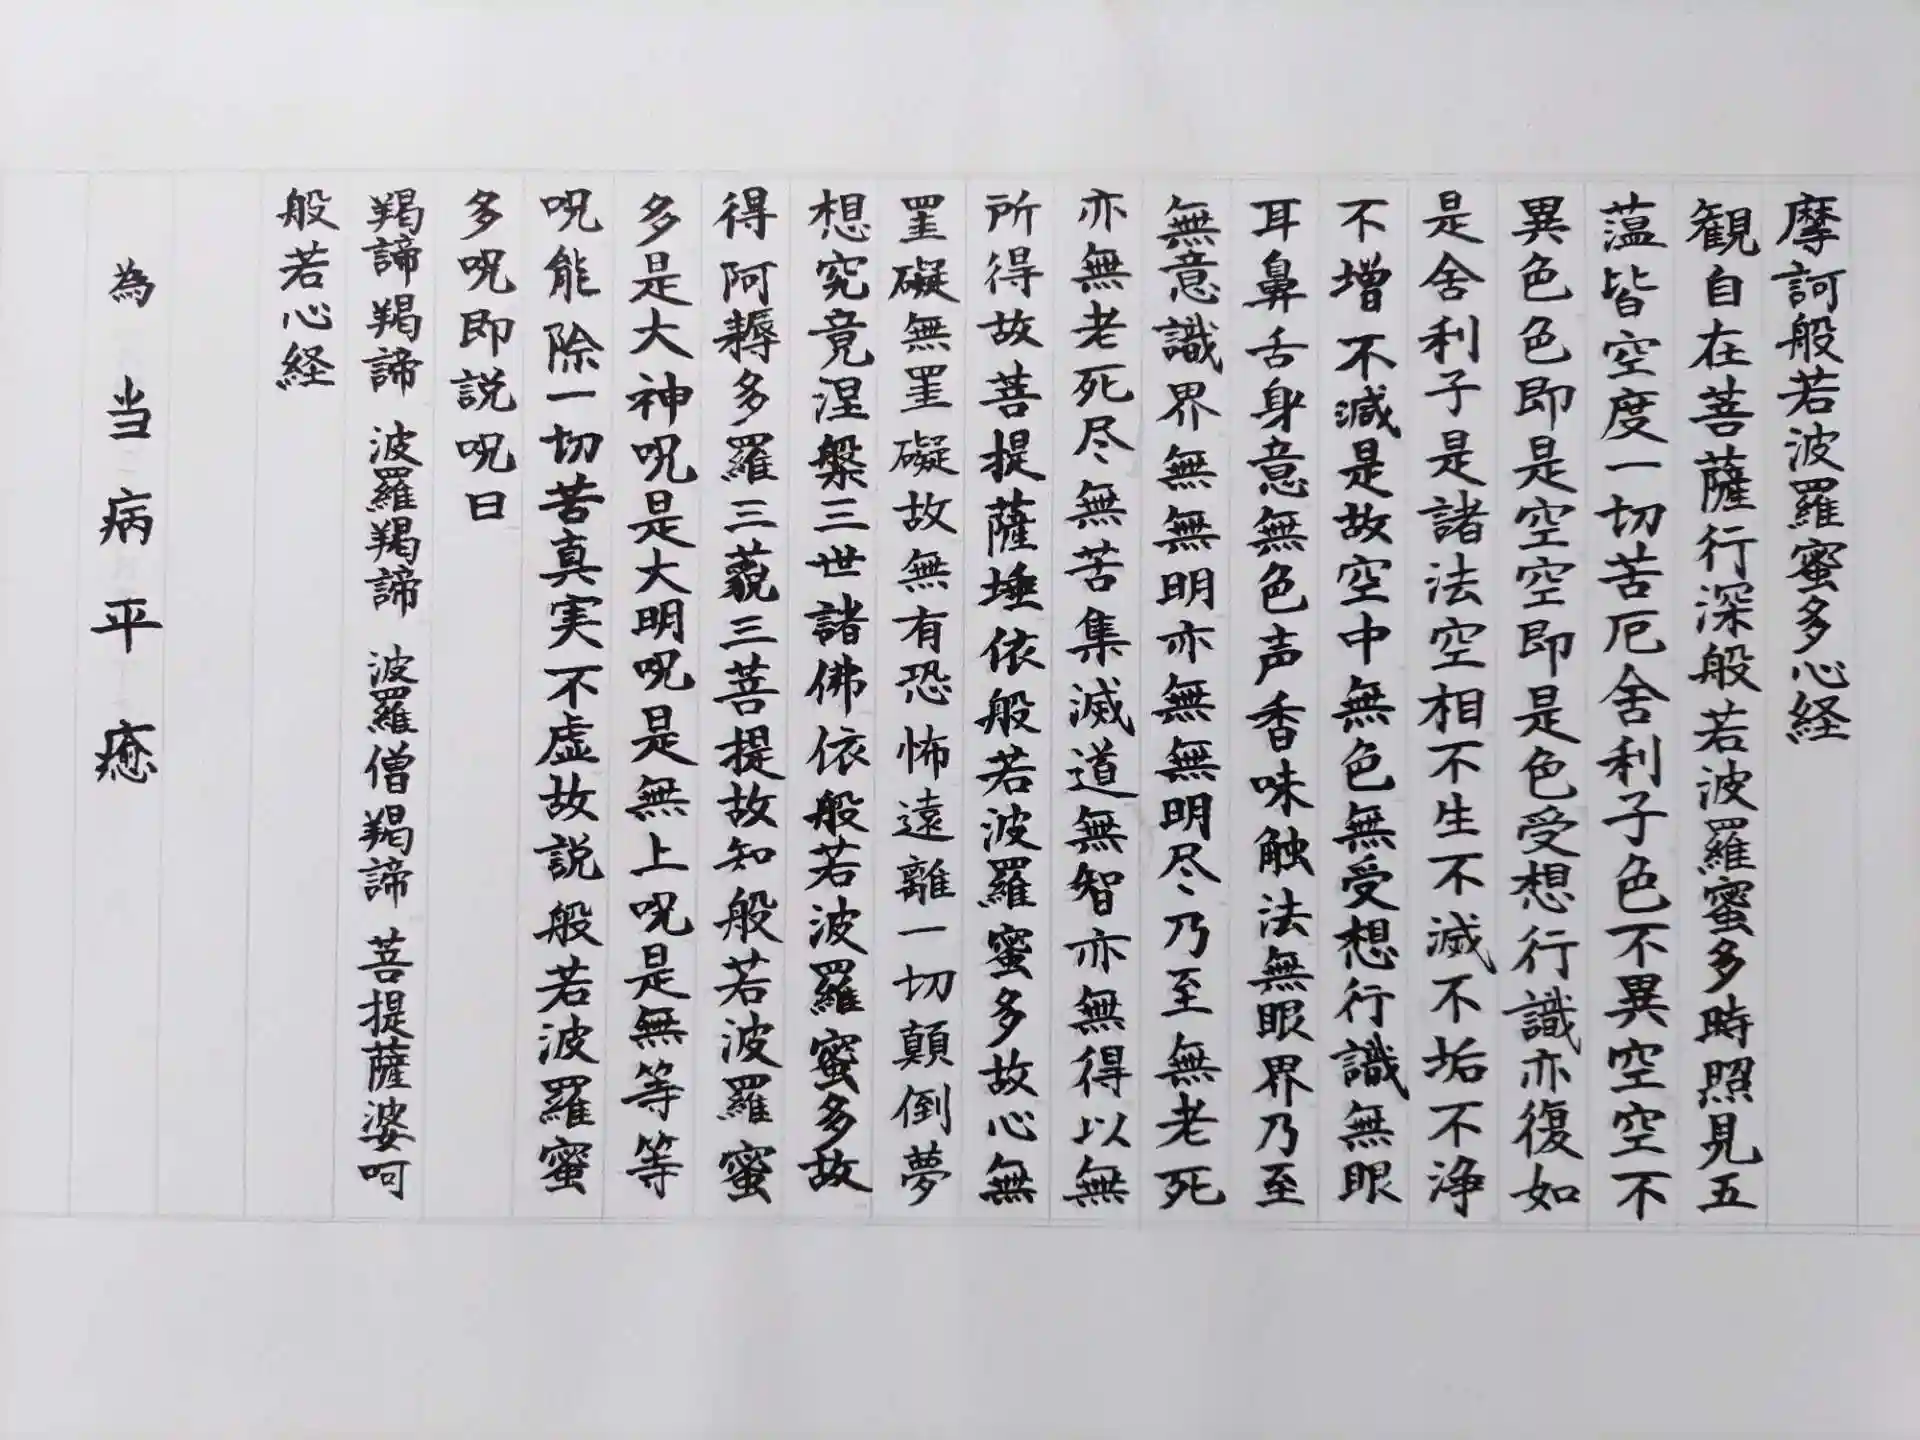 摩訶般若波羅蜜多心経
観自在菩薩行深般若波羅蜜多時照見五
蕰皆空度一切苦厄舎利子色不異空空不
異色色即是空空即是色受想行識亦復如
是舎利子是諸法空相不生不滅不垢不浄
不増不減是故空中無色無受想行識無眼
耳鼻舌身意無色声香味触法無眼界乃至
無意識界無無明亦無無明尽乃至無老死
亦無老死尽無苦集滅道無智亦無得以無
所得故菩提薩埵依般若波羅蜜多故心無
罣礙無罣礙故無有恐怖遠離一切顛倒夢
想究竟涅槃三世諸佛依般若波羅蜜多故
得阿耨多羅三藐三菩提故知般若波羅蜜
多是大神呪是大明呪是無上呪是無等等
呪能除一切苦真実不虚故説般若波羅蜜
多呪即説呪曰
羯諦羯諦 波羅羯諦 波羅僧羯諦 菩提薩婆呵
般若心経
為 当病平癒